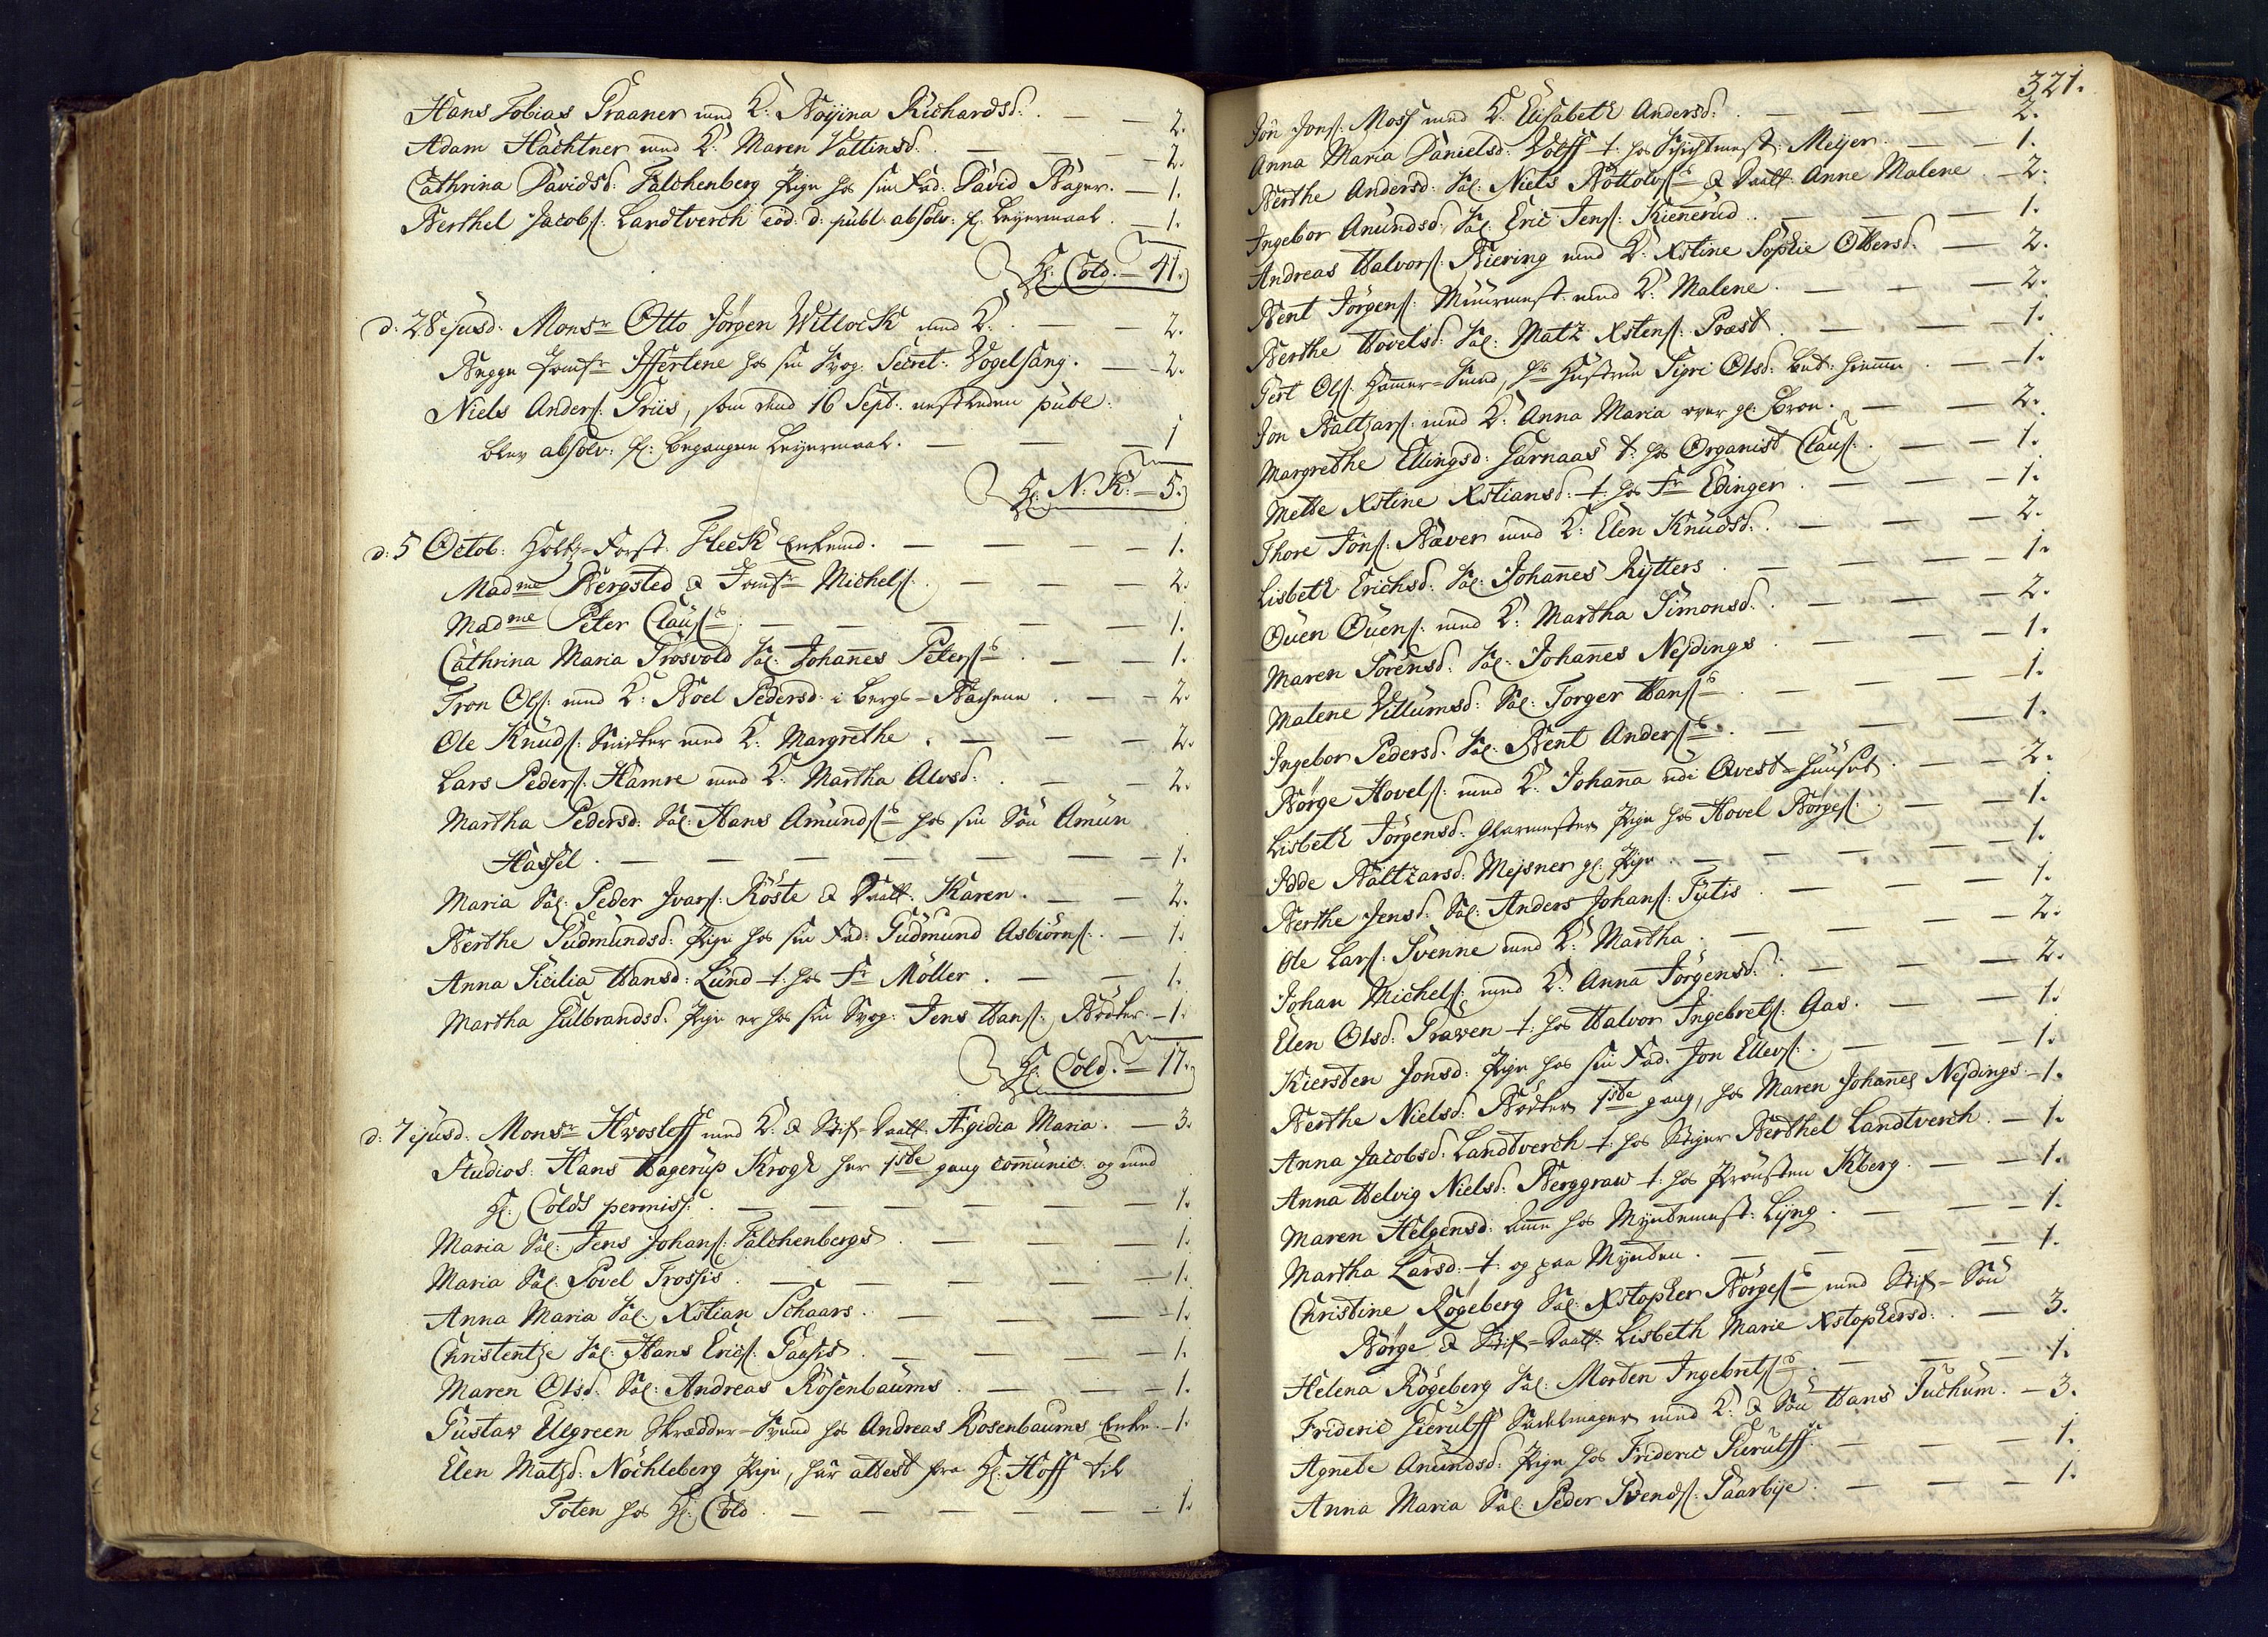 Hans Tobias Praaner med K: Boÿina Richardsd: — — 2.
Adam Hächtner med K: Maren Vattinsd: — — — 2.
Cathrina Davidsd: Falchenberg Pige hos sin Fad: David Bager. — 1.
Berthel Jacobs: Landtverch eod: d: publ: absolv: f. Leyermaal. — 1.
H: Cold. — 41.
d: 28 ejusd: Monsr Otto Jörgen Witlock med K: — — 2.
Begge Jomfr Iffertene hos sin Svog: Secret: Vogelsang. — 2.
Niels Anders: Priis, som dend 16 Sept: nestleden publ:
blev absolv: for begangen Leyermaal. — — — 1
H: N: K: — 5.
d: 5 Octob: Holtz-Forst. Fleck Enkemd. — — — 1.
Madme Bergsted & Jomfr Michels: — — — 2.
Madme Peter Claus: — — — — 1.
Cathrina Maria Prosvold Sal: Johannes Peters: — — 1.
Tron Ols: med K: Boel Pedersd: i Bergs-Bachene — — 2.
Ole Knuds: Snidker med K: Margrethe. — — — 2.
Lars Peders: Hamre med K: Martha Alvsd: — — 2.
Martha Pedersd: Sal: Hans Amunds: hos sin Sön Amun
Hassel. — — — — — — 1.
Maria Sal: Peder Ivars: Röste & Datt: Karen. — — 2.
Berthe Gudmundsd: Pige hos sin Fad: Gudmund Asbiörns: — 1.
Anna Sicilia Hansd: Lund t: hos Fr Möller. — — 1.
Martha Gulbrandsd: Pige er hos sin Svog: Jens Hans: Bödker — 1.
H: Cold. — 17.
d: 7 ejusd: Monsr Hwosleff med K: & Stif-Datt: Ægidia Maria. — 3.
Studios: Hans Hagerup Krogh har 1ste gang communic: og med
H: Colds permiss: — — — — — 1.
Maria Sal: Jens Johans: Falchenbergs — — — 1.
Maria Sal: Povel Trossis. — — — — 1.
Anna Maria Sal: Xstian Schaars. — — — 1.
Christentze Sal: Hans Erics: Gaasis — — — 1.
Maren Olsd: Sal: Andreas Rosenbaums. — — 1.
Gustav Ulgreen Skrædder-Svend hos Andreas Rosenbaums Enke. — 1.
Elen Matsd: Nöchleberg Pige, har attest fra H: Hoff til
Toten hos H: Cold — — — — — 1.
321.
Jon Jons: Moss med K: Elisabeth Andersd: — — — 2.
Anna Maria Danielsd: Wolff t: hos Schichtmest: Meyer. — 1.
Berthe Andersd: Sal: Niels Bottolvs: & Datt: Anne Malene — 2.
Ingebor Anundsd: Sal: Eric Jens: Kiennerud. — — 1.
Andreas Halvors: Biering med K: Xstine Sophie Olversd: — 2.
Bent Jörgens: Muurmest: med K: Malene. — — — 2.
Berthe Hovelsd: Sal: Matz Xstens: Præst — — — 1.
Gert Ols: Hammer-Smed, hs Hustrue Sigri Olsd: bet: hiemme. — 1.
Jon Baltzars: med K: Anna Maria over gl: Broe. — — 2.
Margrethe Ellingsd: Garnaas t: hos Organist Claus: — — 1.
Mette Xstine Xstiansd: t: hos Fr Edinger. — — — 1.
Thore Jöns: Bæver med K: Elen Knudsd: — — — 2.
Lisbeth Erichsd: Sal: Johannes Rytters. — — — 1.
Ouen Ouens: med K: Martha Simonsd: — — — 2.
Maren Sörensd: Sal: Johannes Nejdings — — — 1.
Malene Villumsd: Sal: Torger Hans: — — — 1.
Ingebor Pedersd: Sal: Bent Anders: — — — 1.
Börge Hovels: med K: Johanna udi Qvest-Huuset. — — 2.
Lisbeth Jörgensd: Glarmester Pige hos Hovel Börges: — — 1.
Adde Baltzarsd: Mejsner gl: Pige. — — — — 1.
Berthe Jensd: Sal: Anders Johans: Tytis — — — 1.
Ole Lars: Svenne med K: Martha. — — — — 2.
Johan Michels: med K: Anna Jörgensd: — — — 2.
Elen Olsd: Prawen t: hos Halvor Ingebrets: Aas. — — 1.
Kiersten Jonsd: Pige hos sin Fad: Jon Ellevs: — — — 1.
Berthe Nielsd: Bödker 1ste gang, hos Maren Johannes Nejdings — 1.
Anna Jacobsd: Landtverch t: hos Stiger Berthel Landtverch. — 1.
Anna Helvig Nielsd: Berggraw t: hos Provsten Kberg. — — 1.
Maren Helgensd: Amme hos Myntemest: Lyng. — — — 1.
Martha Larsd: t: og paa Mynten. — — — — 1.
Christine Rögeberg Sal: Xstopher Börges: med Stif-Sön
Börge & Stif-Datt: Lisbeth Marie Xstophersd: — 3.
Helena Rögeberg Sal: Morten Ingebrets: — — — 1.
Frideric Gierulff Sadelmager med K: & Sön Hans Juchum. — 3.
Agnete Anundsd: Pige hos Frideric Gierulff. — — 1.
Anna Maria Sal: Peder Svends: Paarbye. — — — 1.